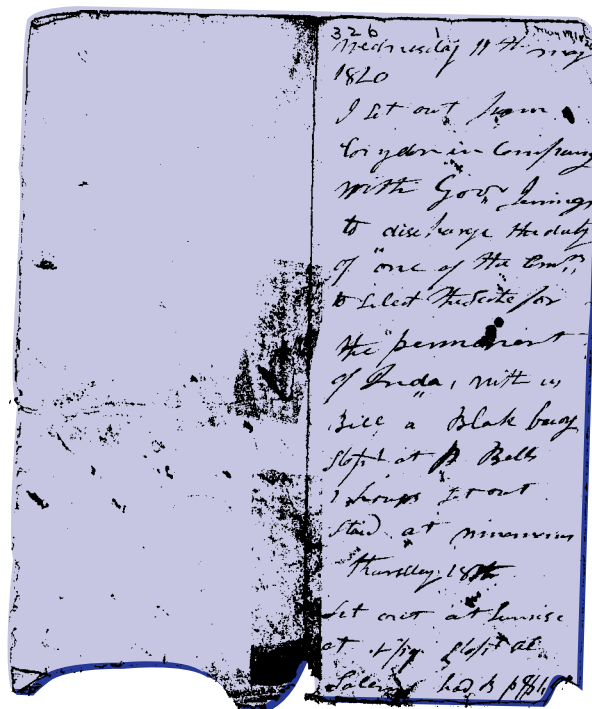 326 1
Wednesday 17th may
1820
I set out from
Corydon in Company
with Govr Jennings
to discharge the duty
of one of the Comrs
to select the scite for
the permanent
of Inda, with us
Bill a Blak boy
stopt at P Bells
2 hours set out
staid at
Thursday 18th
set out at sunrise
at stopt at
Salem had